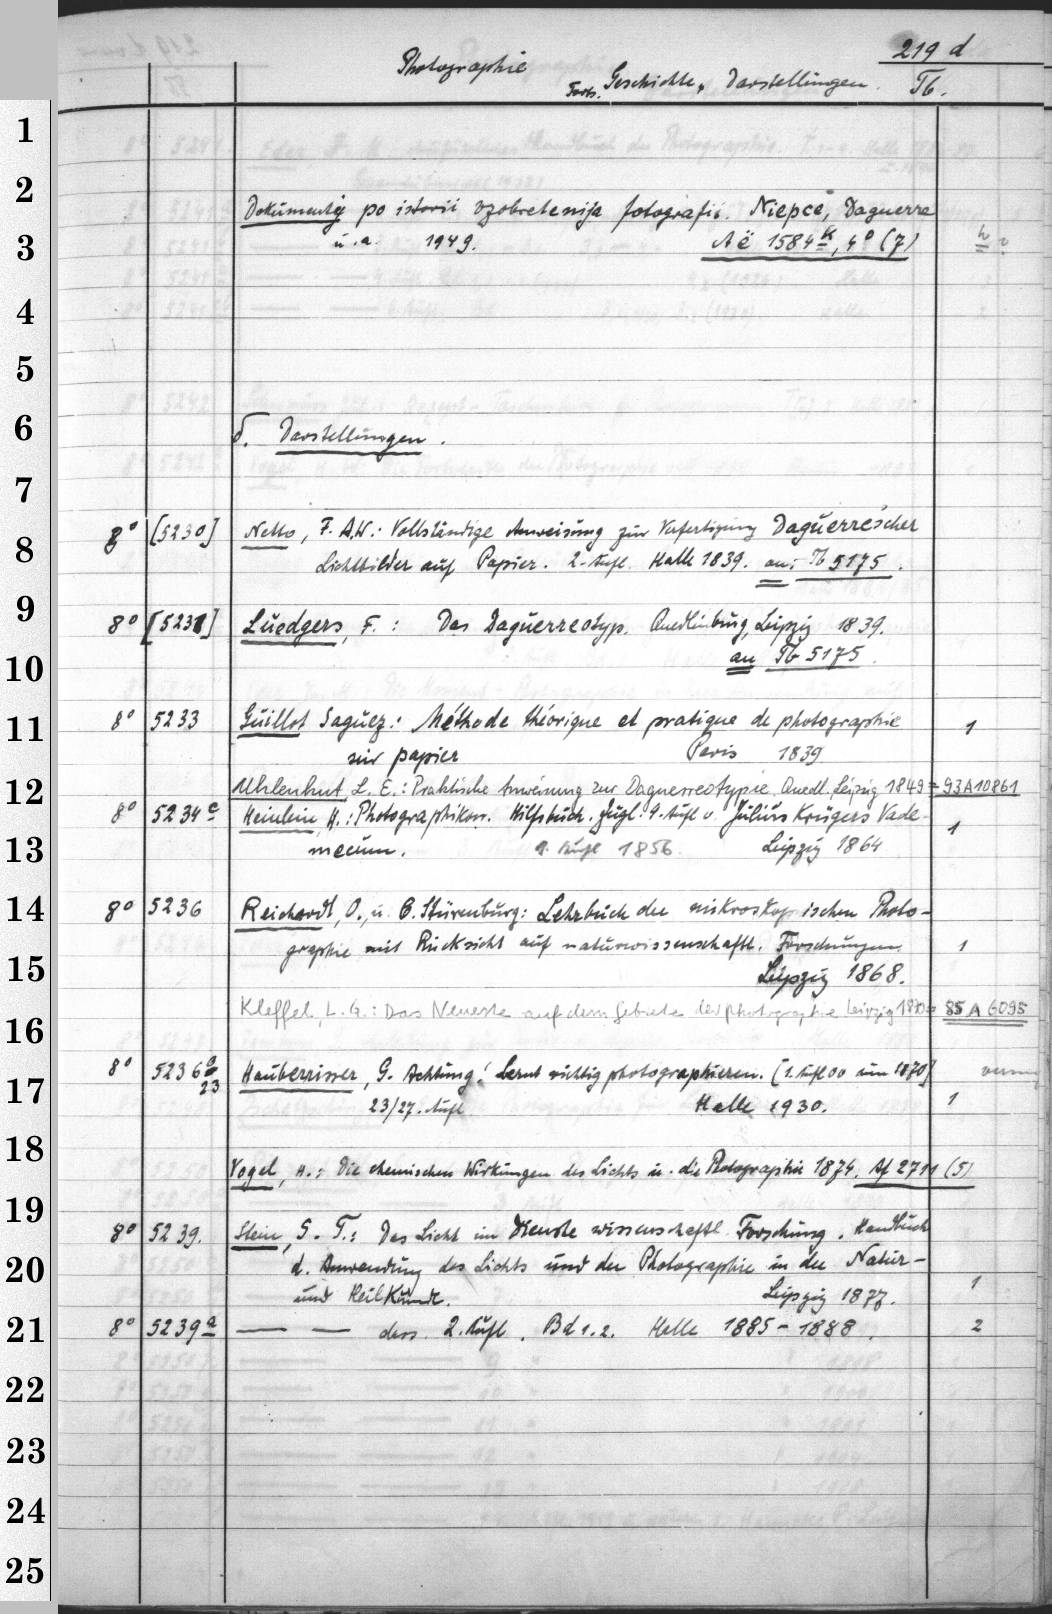 219 d
Photographie
Forts. Geschichte, Darstellungen. Tb.
1
2
Dokumenty po istorii izobretenija fotografii. Niepce, Daguerre
3
u. a. 1949. Aë 1584 k, 4° (7)
4
5
6
δ. Darstellungen.
7
8° [5230] Netto, F. A. W.: Vollständige Anweisung zur Verfertigung Daguerre'scher
8
Lichtbilder auf Papier. 2. Aufl. Halle 1839. an: Tb 5175.
9
8° [5231] Luedgers, F.: Das Daguerreotyp. Quedlinburg, Leipzig 1839.
10
an Tb 5175.
8° 5233 Guillot Saguez: Méthode théorique et pratique de photographie 1
11
sur papier Paris 1839
12
Uhlenhut, L. E.: Praktische Anweisung zur Daguerreotypie. Quedl. Leipzig 1849 = 93A10861
8° 5234 c Heinlein, H.: Photographikon. Hilfsbuch. Zugl. 9. Aufl. v. Julius Krügers Vade- 1
13
mecum. 1. Aufl 1856. Leipzig 1864
14
8° 5236 Reichardt, O., u. C. Stürenburg: Lehrbuch der mikroskopischen Photo-
graphie mit Rücksicht auf naturwissenschaftl. Forschungen. 1
15
Leipzig 1868.
Kleffel, L. G.: Das Neueste auf dem Gebiete der Photographie Leipzig 1870 = 85 A 6095
16
8° 5236 a 23 Hauberrisser, G. Achtung! Lernt richtig photographieren. [1. Aufl um 1870]
17
23/27. Aufl Halle 1930. 1
18
Vogel, H.: Die chemischen Wirkungen des Lichts u. die Photographie 1874. Af 2711 (5)
19
8° 5239. Stein, S. T.: Das Licht im Dienste wissenschaftl. Forschung. Handbuch
20
d. Anwendung des Lichts und der Photographie in der Natur-
und Heilkunde. Leipzig 1877. 1
21
8° 5239 a — — dass. 2. Aufl. Bd 1.2. Halle 1885–1888. 2
22
23
24
25